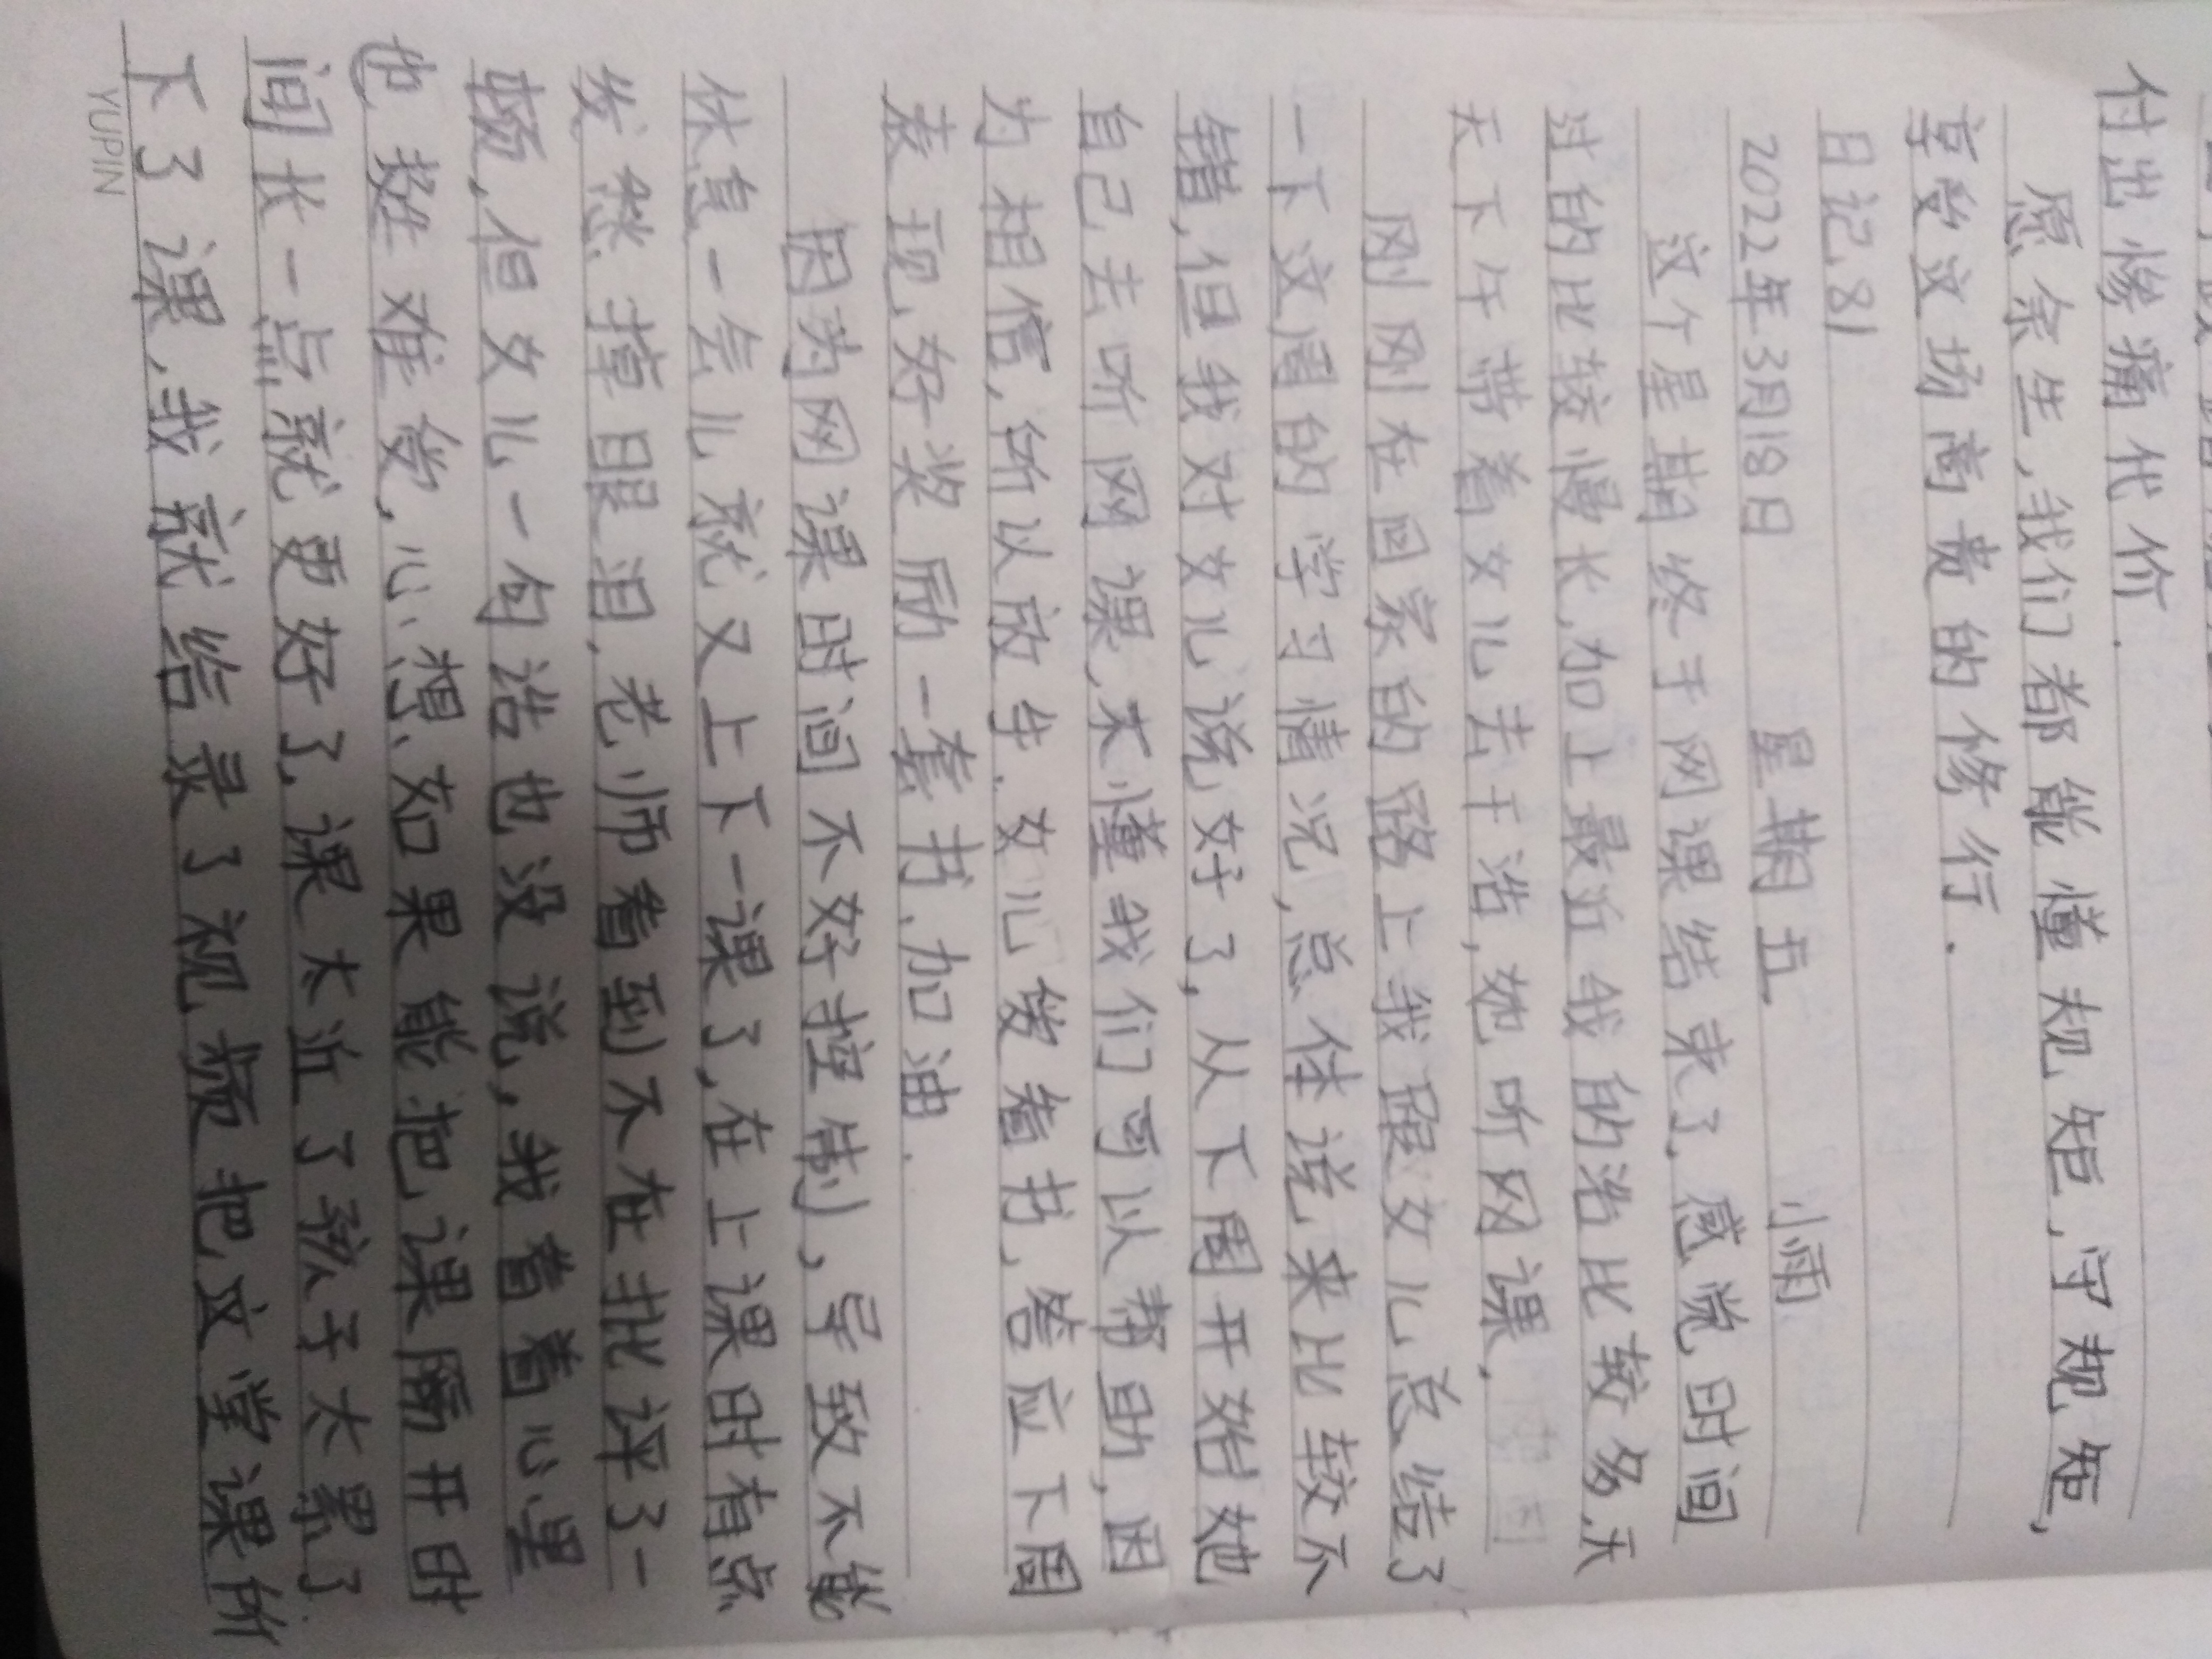 付出惨痛代价.
愿余生,我们都能懂规矩,守规矩,
享受这场高贵的修行.
日记81
2022年3月18日 星期五 小雨
这个星期终于网课结束了,感觉时间
过的比较慢长,加上最近我的活比较多,天
天下午带着女儿去干活,她听网课,
刚刚在回家的路上我跟女儿总结了
一下这周的学习情况,总体说来比较不
错,但我对女儿说好了,从下周开始她
自己去听网课,不懂我们可以帮助,因
为相信,所以放手.女儿发着书,答应下周
表现好奖励一套书,加油.
因为网课时间不好控制,导致不能
休息一会儿就又上下一课了,在上课时有点
发然掉眼泪,老师看到不在批评了一
顿,但女儿一句话也没说,我看着心里
也挺难受,心想,如果能把课隔开时
间长一点就更好了,课太近了孩子太累了
下了课,我就给录了视频把这堂课所
YUPIN